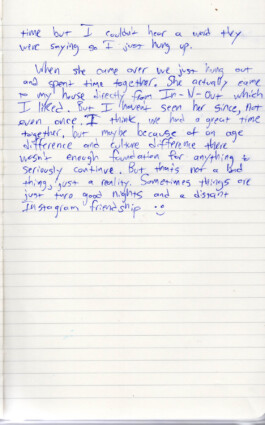 time but I couldn't hear a word they
were saying so I just hung up.
When she came over we just hung out
and spent time together. She actually came
to my house directly from In-N-Out which
I liked. But I haven't seen her since, not
even once. I think, we had a great time
together, but maybe because of an age
difference and culture difference there
wasn't enough foundation for anything to
seriously continue. But that's not a bad
thing, just a reality. Sometimes things are
just two good nights and a distant
Instagram friendship :)